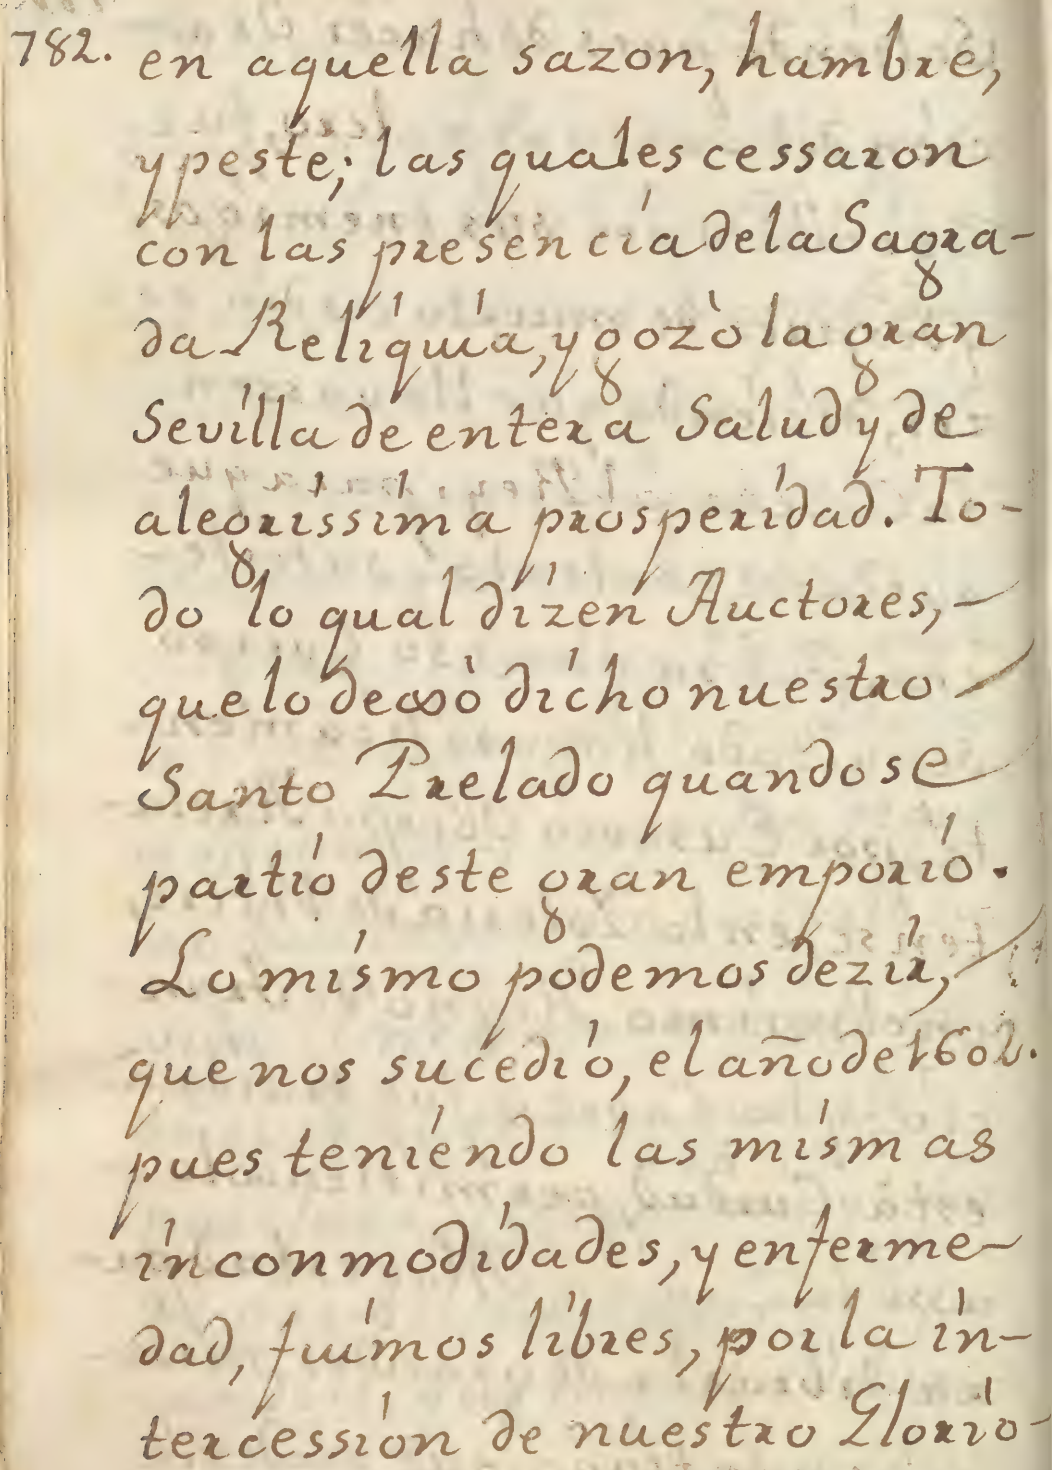 782. en aquella sazon, hambre,
y peste; las quales cessaron
con las presencia de la Sagra-
da Reliquia, y gozò la gran
Sevilla de entera Salud y de
alegrissima prosperidad. To-
do lo qual dizen Auctores,
que lo dexò dicho nuestro
Santo Prelado quando se
partio deste gran emporio.
Lo mismo podemos dezir,
que nos sucedio, el año de 1602.
pues teniendo las mismas
inconmodidades, y enferme-
dad, fuimos libres, por la in-
tercession de nuestro Glorio-